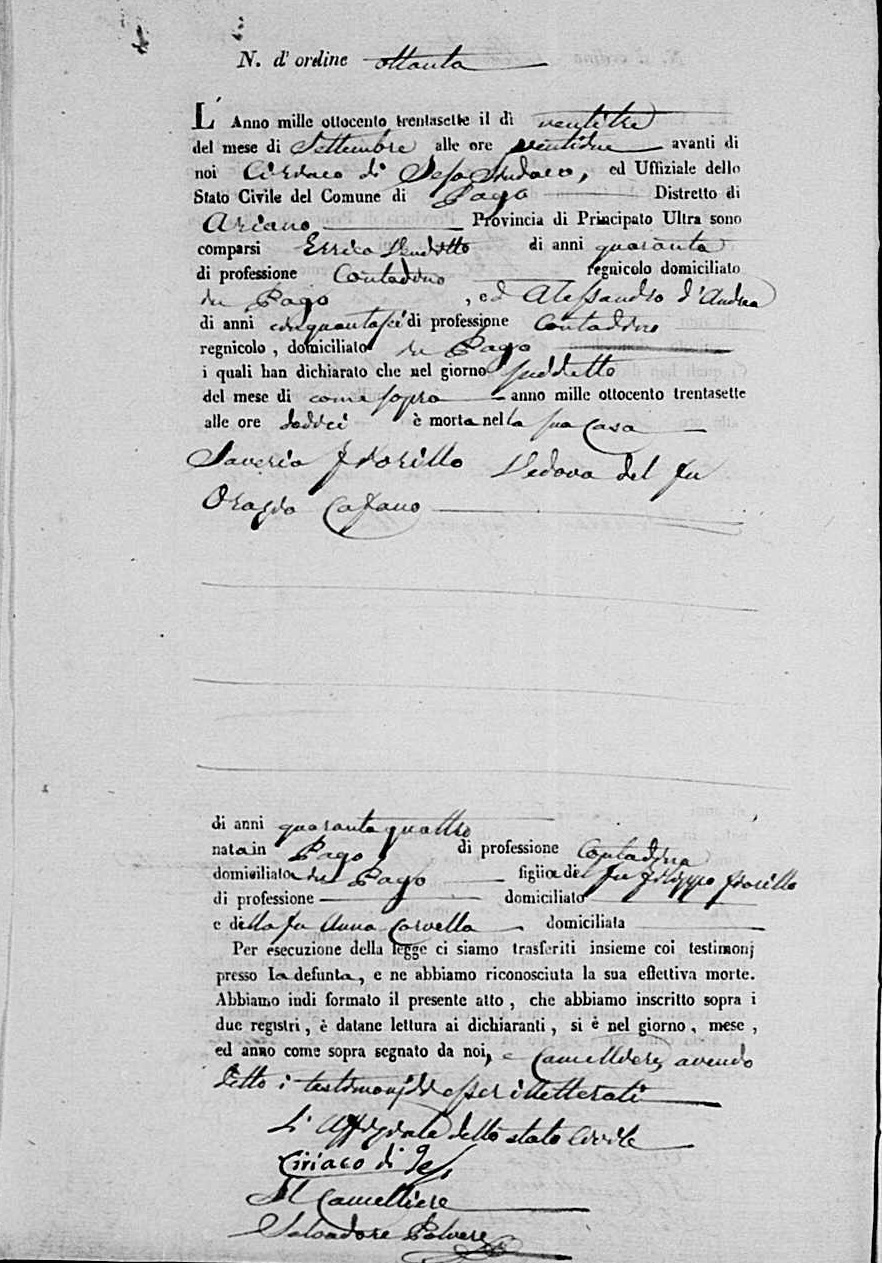 N. d' ordine ottanta
L' Anno mille ottocento trentasette il dì ventitre
del mese di Settembre alle ore ventidue avanti di
noi Ciriaco di Sindaco, ed Uffiziale dello
Stato Civile del Comune di Pago Distretto di
Ariano Provincia di Principato Ultra sono
comparsi Errico di anni quaranta
di professione Contadino regnicolo domiciliato
in Pago , ed Alessandro d'Andrea
di anni cinquantasei di professione Contadino
regnicolo , domiciliato in Pago
i quali han dichiarato che nel giorno suddetto
del mese di come sopra anno mille ottocento trentasette
alle ore dodici è morta nella sua Casa
Saveria Fiorillo Vedova del fu
Orazio Cafano
di anni quaranta quattro
nata in Pago di professione Contadina
domiciliata in Pago figlia del fu Filippo Fiorillo
di professione domiciliato
e della fu Anna Carvella domiciliata
Per esecuzione della legge ci siamo trasferiti insieme coi testimonj
presso la defunta, e ne abbiamo riconosciuta la sua effettiva morte.
Abbiamo indi formato il presente atto , che abbiamo inscritto sopra i
due registri , è datane lettura ai dichiaranti , si è nel giorno , mese ,
ed anno come sopra segnato da noi, e avendo
detto i testimonj di esser illetterati
L' Uffiziale dello stato Civile
Ciriaco di
Il Cancelliere
Salvadore Polvere